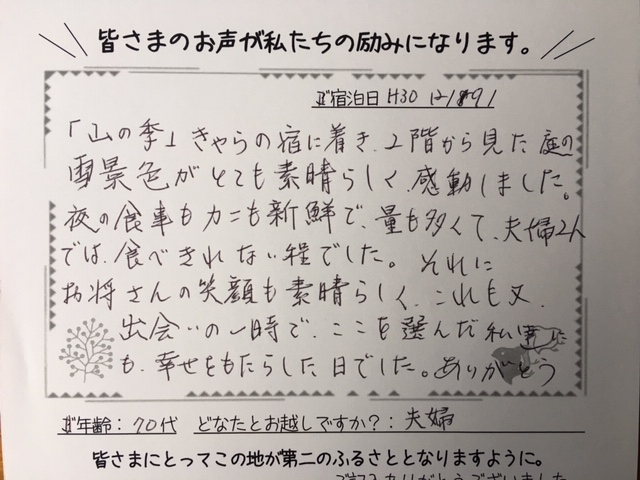 皆さまのお声が私たちの励みになります。
ご宿泊日 H30 12/
「山の季」きゃらの宿に着き、2階から見た庭の
雪景色がとても素晴らしく、感動しました。
夜の食事もカニも新鮮で、量も多くて、夫婦2人
では、食べきれない程でした。それに
お将さんの笑顔も素晴らしく、これも又、
出会いの一時で、ここを選んだ私達に
も、幸せをもたらした日でした。ありがとう
ご年齢：70代 どなたとお越しですか？：夫婦
皆さまにとってこの地が第二のふるさととなりますように。